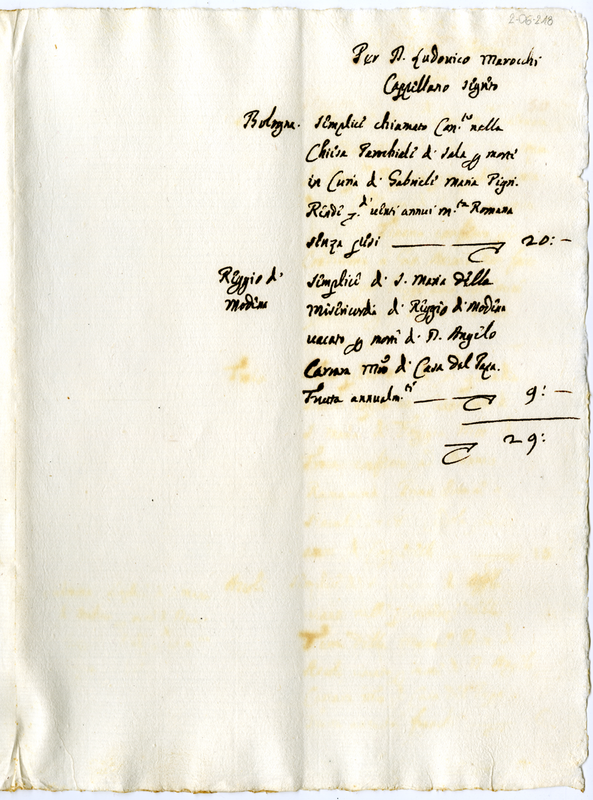 2-06-218
Per D. Ludovico Marocchi
Cappellano segreto
Bologna. Semplice chiamato Can.to nella
Chiesa Parochiale di Sala p morte
in Curia di Gabriele Maria Pigri.
Rende p. d. venti annui m.ta Romana
senza pesi 20:-
Reggio di Semplice di S. Maria della
Modena Misericordia di Reggio di Modena
vacato p morte di D. Angelo
Carrara di Casa del
Frutta annualm.te 9:-
29: